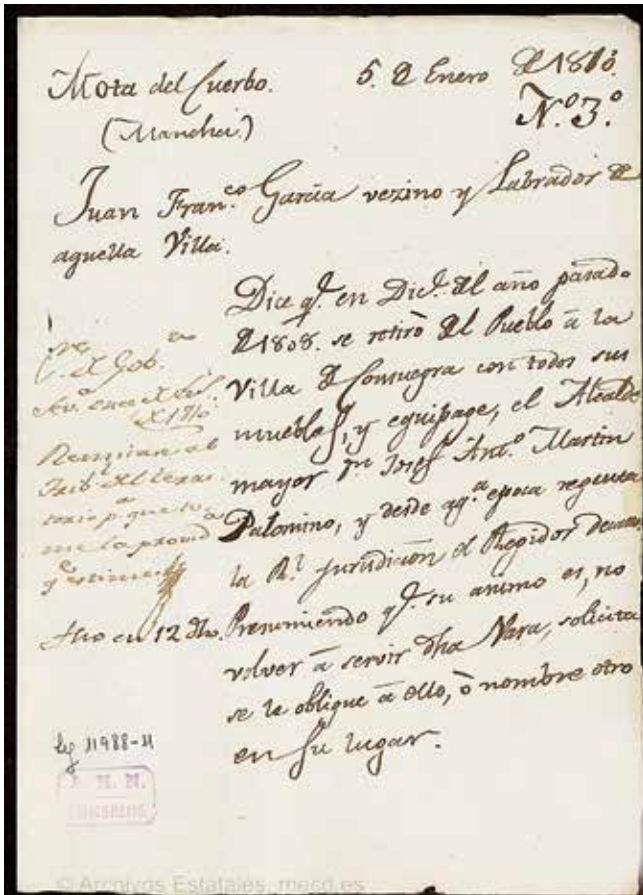 Mota del Cuerbo. 5. de Enero de 1810.
(Mancha.) N.º 3.º
Juan Fran.co Garcia vezino y Labrador de
aquella Villa.
Dice q.e en Dic.e del año pasado
de 1808. se retirò del Pueblo à la
Villa de Consuegra con todos sus
muebles, y equipage, el Alcalde
mayor Josef Ant.o Martin
Palomino, y desde aq.a epoca regenta
la R.l jurisdicion el Regidor decano,
Presumiendo q.e su animo es, no
volver à servir dha Vara, solicita
se le obligue à ello, ò nombre otro
en su lugar.
el Gob.
de 1810
Remitase al
Trib.l del terri
torio p.a que to
me la provid.a
q.e estime
fho en 12 dho.
leg 11988-11
A. H. N.
CONSEJOS
© Archivos Estatales, mecd.es